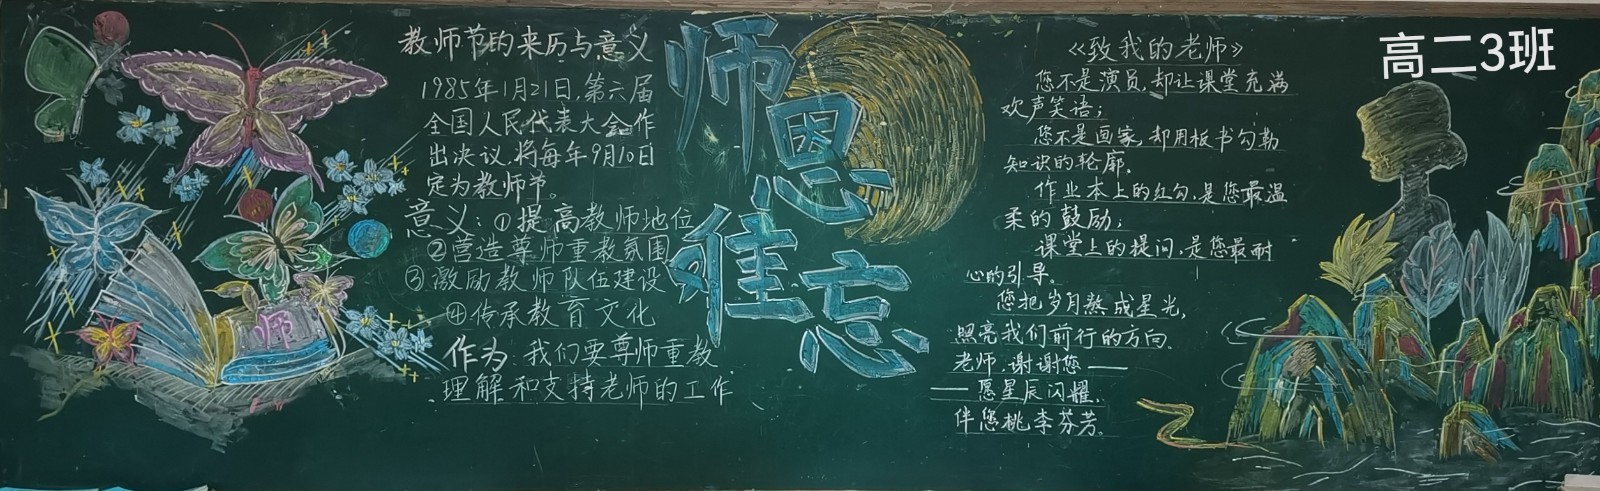 教师节的来历与意义
1985年1月21日,第六届
全国人民代表大会作
出决议,将每年9月10日
定为教师节。
意义:①提高教师地位
②营造尊师重教氛围
③激励教师队伍建设
④传承教育文化
作为 我们要尊师重教
理解和支持老师的工作
师
师恩难忘
《致我的老师》
您不是演员,却让课堂充满
欢声笑语;
您不是画家,却用板书勾勒
知识的轮廓.
作业本上的红勾,是您最温
柔的鼓励;
课堂上的提问,是您最耐
心的引导。
您把岁月熬成星光,
照亮我们前行的方向.
老师,谢谢您——
——愿星辰闪耀,
伴您桃李芬芳。
高二3班